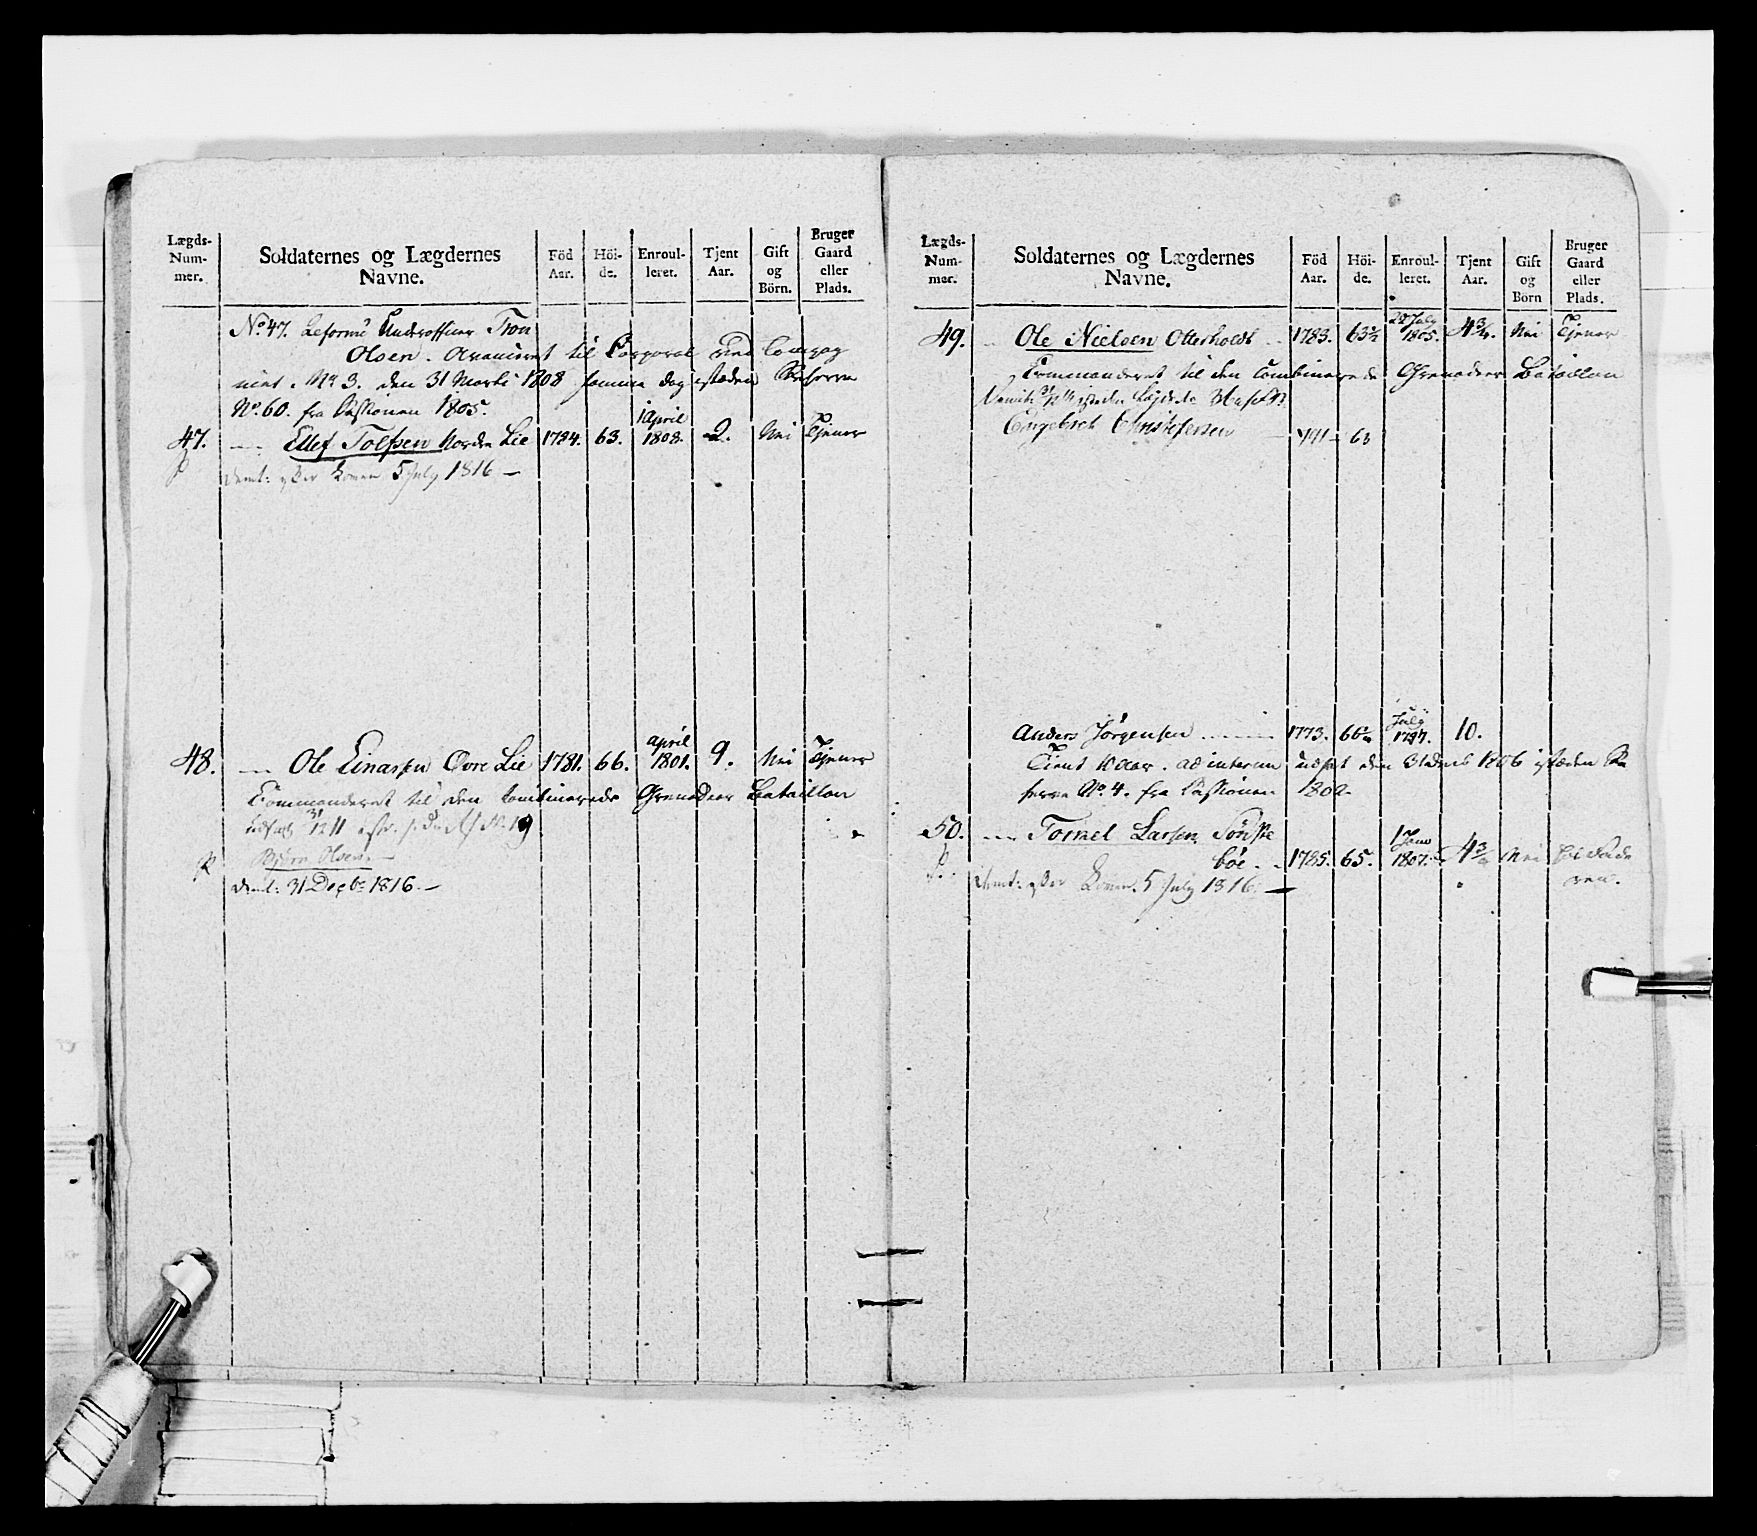 Lægds-
Num-
mer.
Soldaternes og Lægdernes
Navne.
Föd
Aar.
Höi-
de.
Enroul-
leret.
Tjent
Aar.
Gift
og
Börn.
Bruger
Gaard
eller
Plads.
No 47. Underofficeer Tron
Olsen. Avanceret til Corporal ved Compag
niet No 3. den 31 Marti 1808 samme dag istæden Reserve
No. 60. fra Sessionen 1805.
47. Ellef Tolfsen Nordre Lie 1784. 63. 1 April 1808. 2. Nei Tjener
Demt: 5 July 1816 —
48. Ole Einarsen Øvre Lie 1781. 66. April 1801. 9. Nei Tjener
Commanderet til den Combinerede Grenadeer Bataillon
No. 19
Biörn Olsen —
Demt: 31 Decbr 1816. —
Lægds-
Num-
mer.
Soldaternes og Lægdernes
Navne.
Föd
Aar.
Höi-
de.
Enroul-
leret.
Tjent
Aar.
Gift
og
Börn
Bruger
Gaard
eller
Plads.
49. Ole Nielsen Otterholdt 1783. 63½ 28 July 1805. 4¾. Nei Tjener
Commanderet til den Combinerede Grenadeer Bataillon
Engebret Christofersen
Anders Jörgensen 1773. 66 July 1797. 10.
Tient 10 Aar. ad interim udsat den 31 Decb 1806 istæden Re
serve No. 4. fra Sessionen 1802.
50. Tormel Larsen Söndste
böe 1785. 65. 1 Janv 1807. 4¾ Nei hos Fade
ren.
Demt: 5 July 1816. —